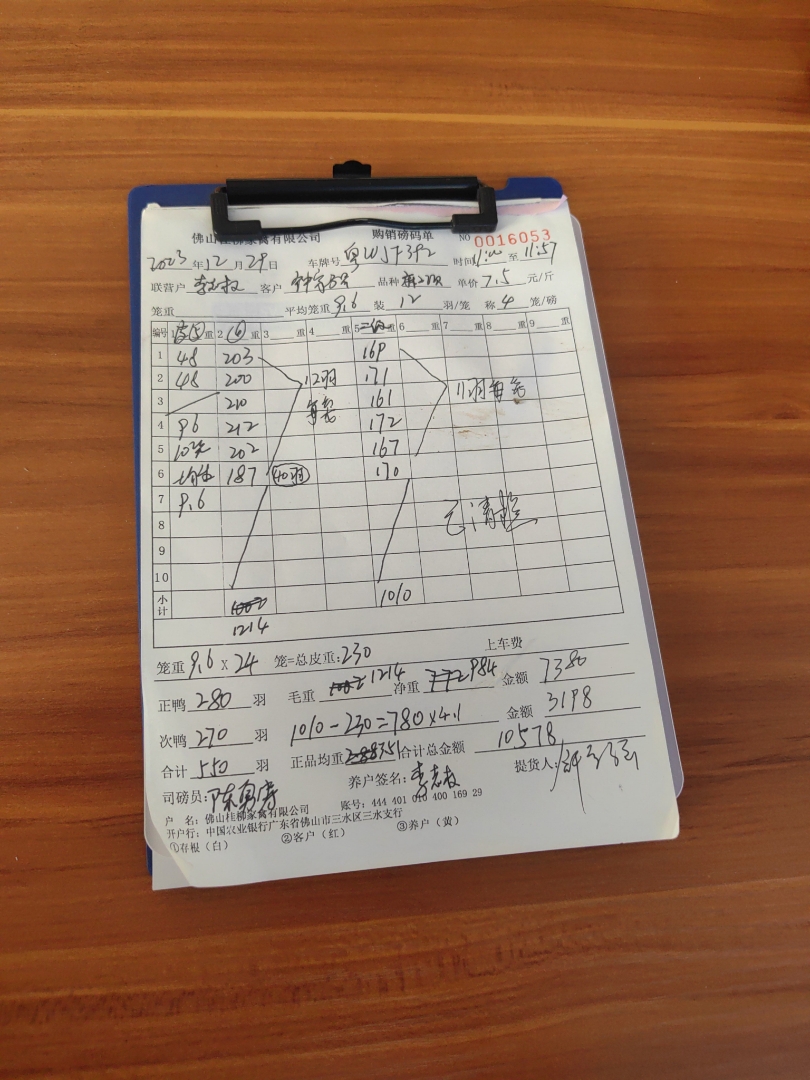 佛山桂柳家禽有限公司 购销磅码单 NO 0016053
2023年12月29日 车牌号 粤WJF392 时间 11:00 至 11:57
联营户 李志权 客户 品种 单价 7.5 元/斤
笼重 平均笼重 9.6 装 12 羽/笼 称 4 笼/磅
编号 1 重 2 ⑥ 重 3 重 4 重 5 二级 重 6 重 7 重 8 重 9 重
1 48 203 169
2 48 200 12羽 171 11羽每笼
3 210 每笼 161
4 96 212 172
5 10笼 202 167
6 均重 187 40羽 170
7 9.6
8
9
10
小计 1002 1010
1214
已清栏
上车费
笼重 9.6 x 24 笼=总皮重:230
正鸭 280 羽 毛重 1002 1214 净重 772 984 金额 7380
次鸭 270 羽 1010-230=780x4.1 金额 3198
合计 550 羽 正品均重 3.51 合计总金额 10578
司磅员: 养户签名: 李志权 提货人:
户 名: 佛山桂柳家禽有限公司 账号: 444 401 010 400 169 29
开户行: 中国农业银行广东省佛山市三水区三水支行
①存根(白) ②客户(红) ③养户(黄)